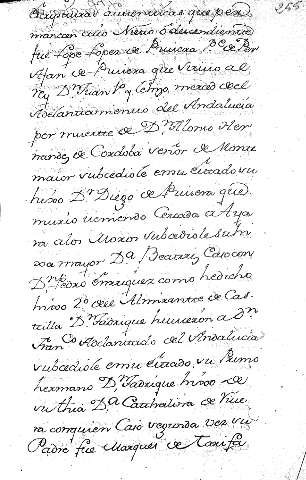 255
Scripturas autenticas que per
manzcan cuio Nieto o descendiente
fue Lope Lopez de Rivera Pe. de Per
Afan de Rivera que sirvio al
Rey Dn. Juan 1º y le hizo merced del
Adelantamiento del Andalucia
por muerte de Dn. Alonso Her
nandez de Cordoba señor de Monte
maior subcediole en su estado su
hixo Dn. Diego de Rivera que
murio teniendo Cercada a Aya
ra a los Moros subcediole su m
xa mayor Da. Beatriz Caso con
Dn. Pedro Enriquez como he dicho
hixo 2º de el Almirante de Cas-
tilla Dn. Fadrique huvieron a Dn.
Franco. Adelantado del Andalucia
subcediole en su estado su Primo
hermano Dn. Fadrique hixo de
su thia Da. Cathalina de Rive
ra con quien Caso segunda vez su
Padre fue Marques de Tarifa